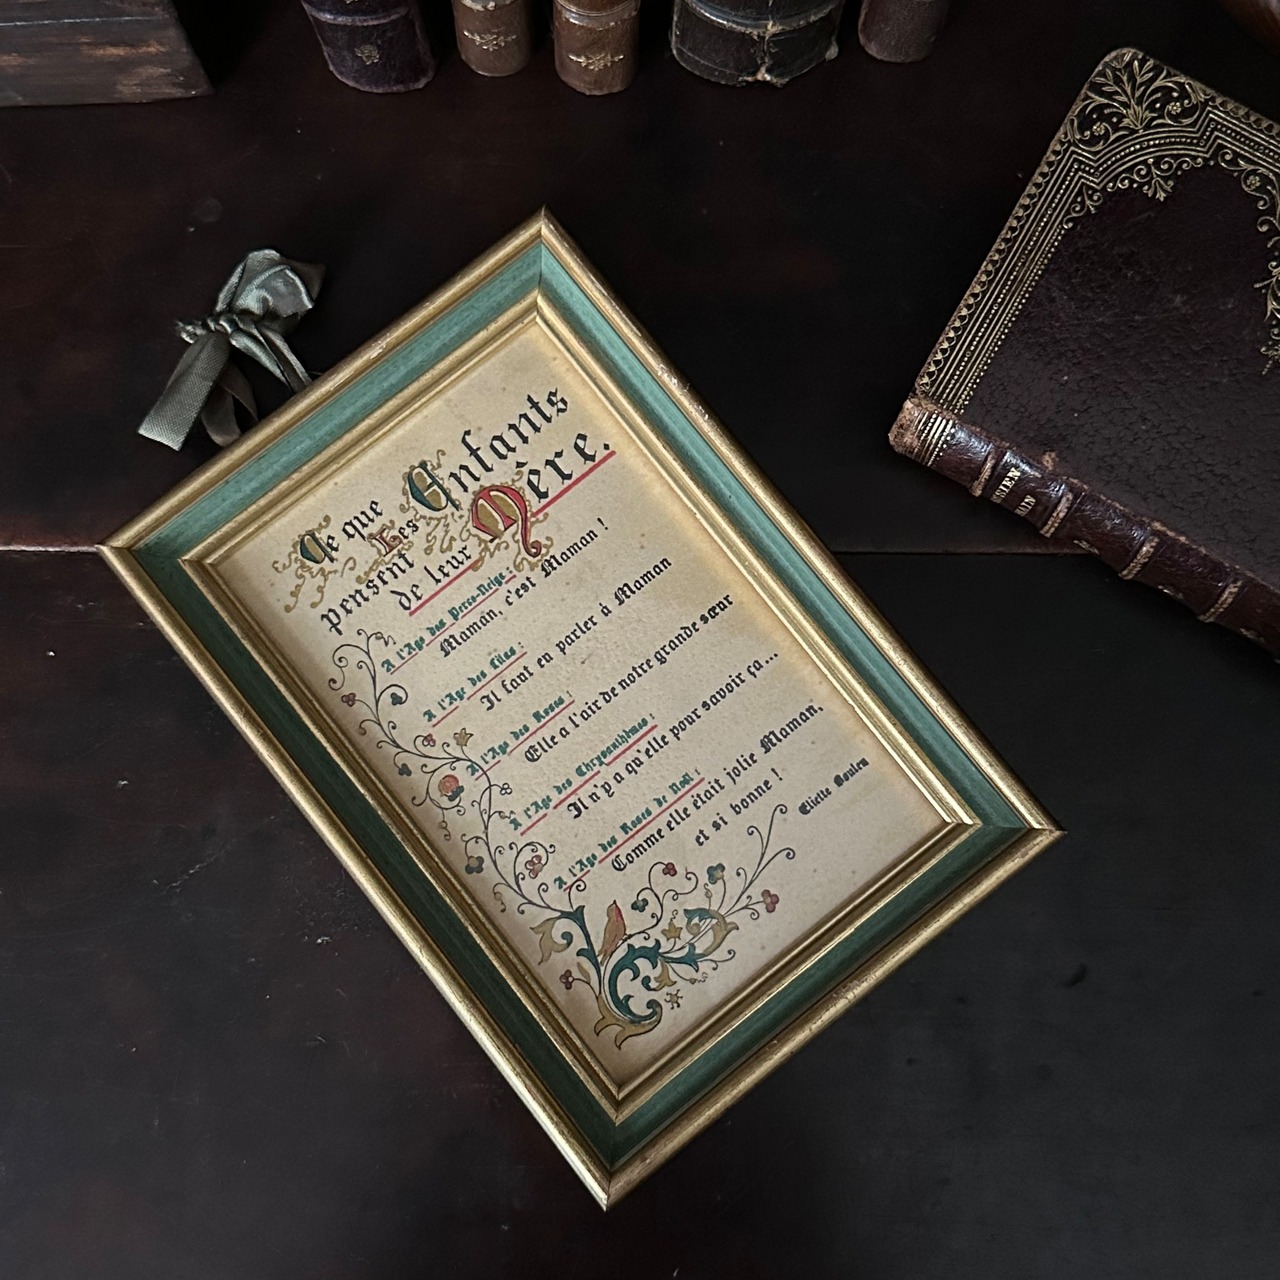 Ce que Les Enfants
pensent de leur Mère.
A l'Age des Perce-Neige :
Maman, c'est Maman !
A l'Age des Lilas :
Il faut en parler à Maman
A l'Age des Roses :
Elle a l'air de notre grande sœur
A l'Age des Chrysanthèmes :
Il n'y a qu'elle pour savoir ça...
A l'Age des Roses de Noël :
Comme elle était jolie Maman,
et si bonne !